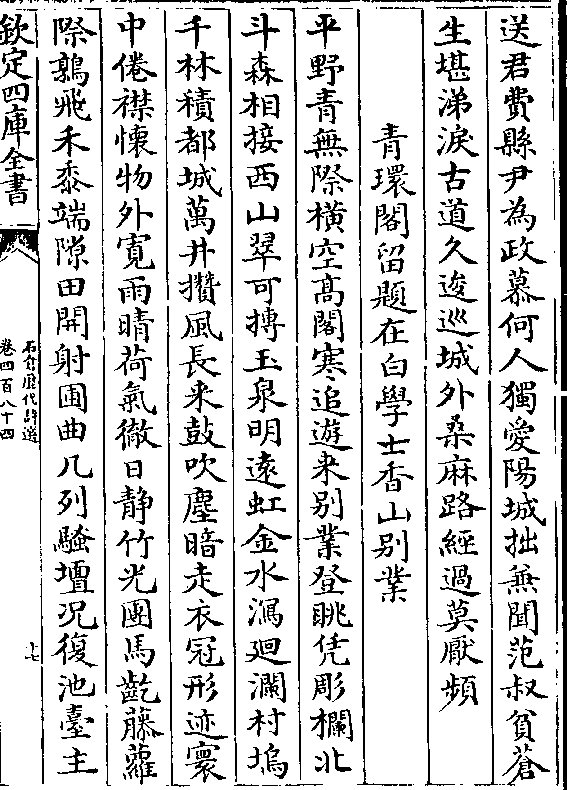 送君費縣尹為政慕何人獨愛陽城拙無聞范叔貧蒼
生堪涕淚古道久逡巡城外桑麻路經過莫厭頻
青環閣留題在白學士香山别業
平野青無際橫空髙閣寒追遊来别業登眺凭彫欄北
斗森相接西山翠可摶玉泉明逺虹金水瀉廻瀾村塢
千林積都城萬井攢風長来鼓吹塵暗走衣冠形迹寰
中倦襟懐物外寛雨晴荷氣徹日静竹光團馬齕藤蘿
際鶉飛禾黍端隙田開射圃曲几列騷壇况復池臺主
欽定四庫全書
石倉歴代詩選
卷四百八十四
十七